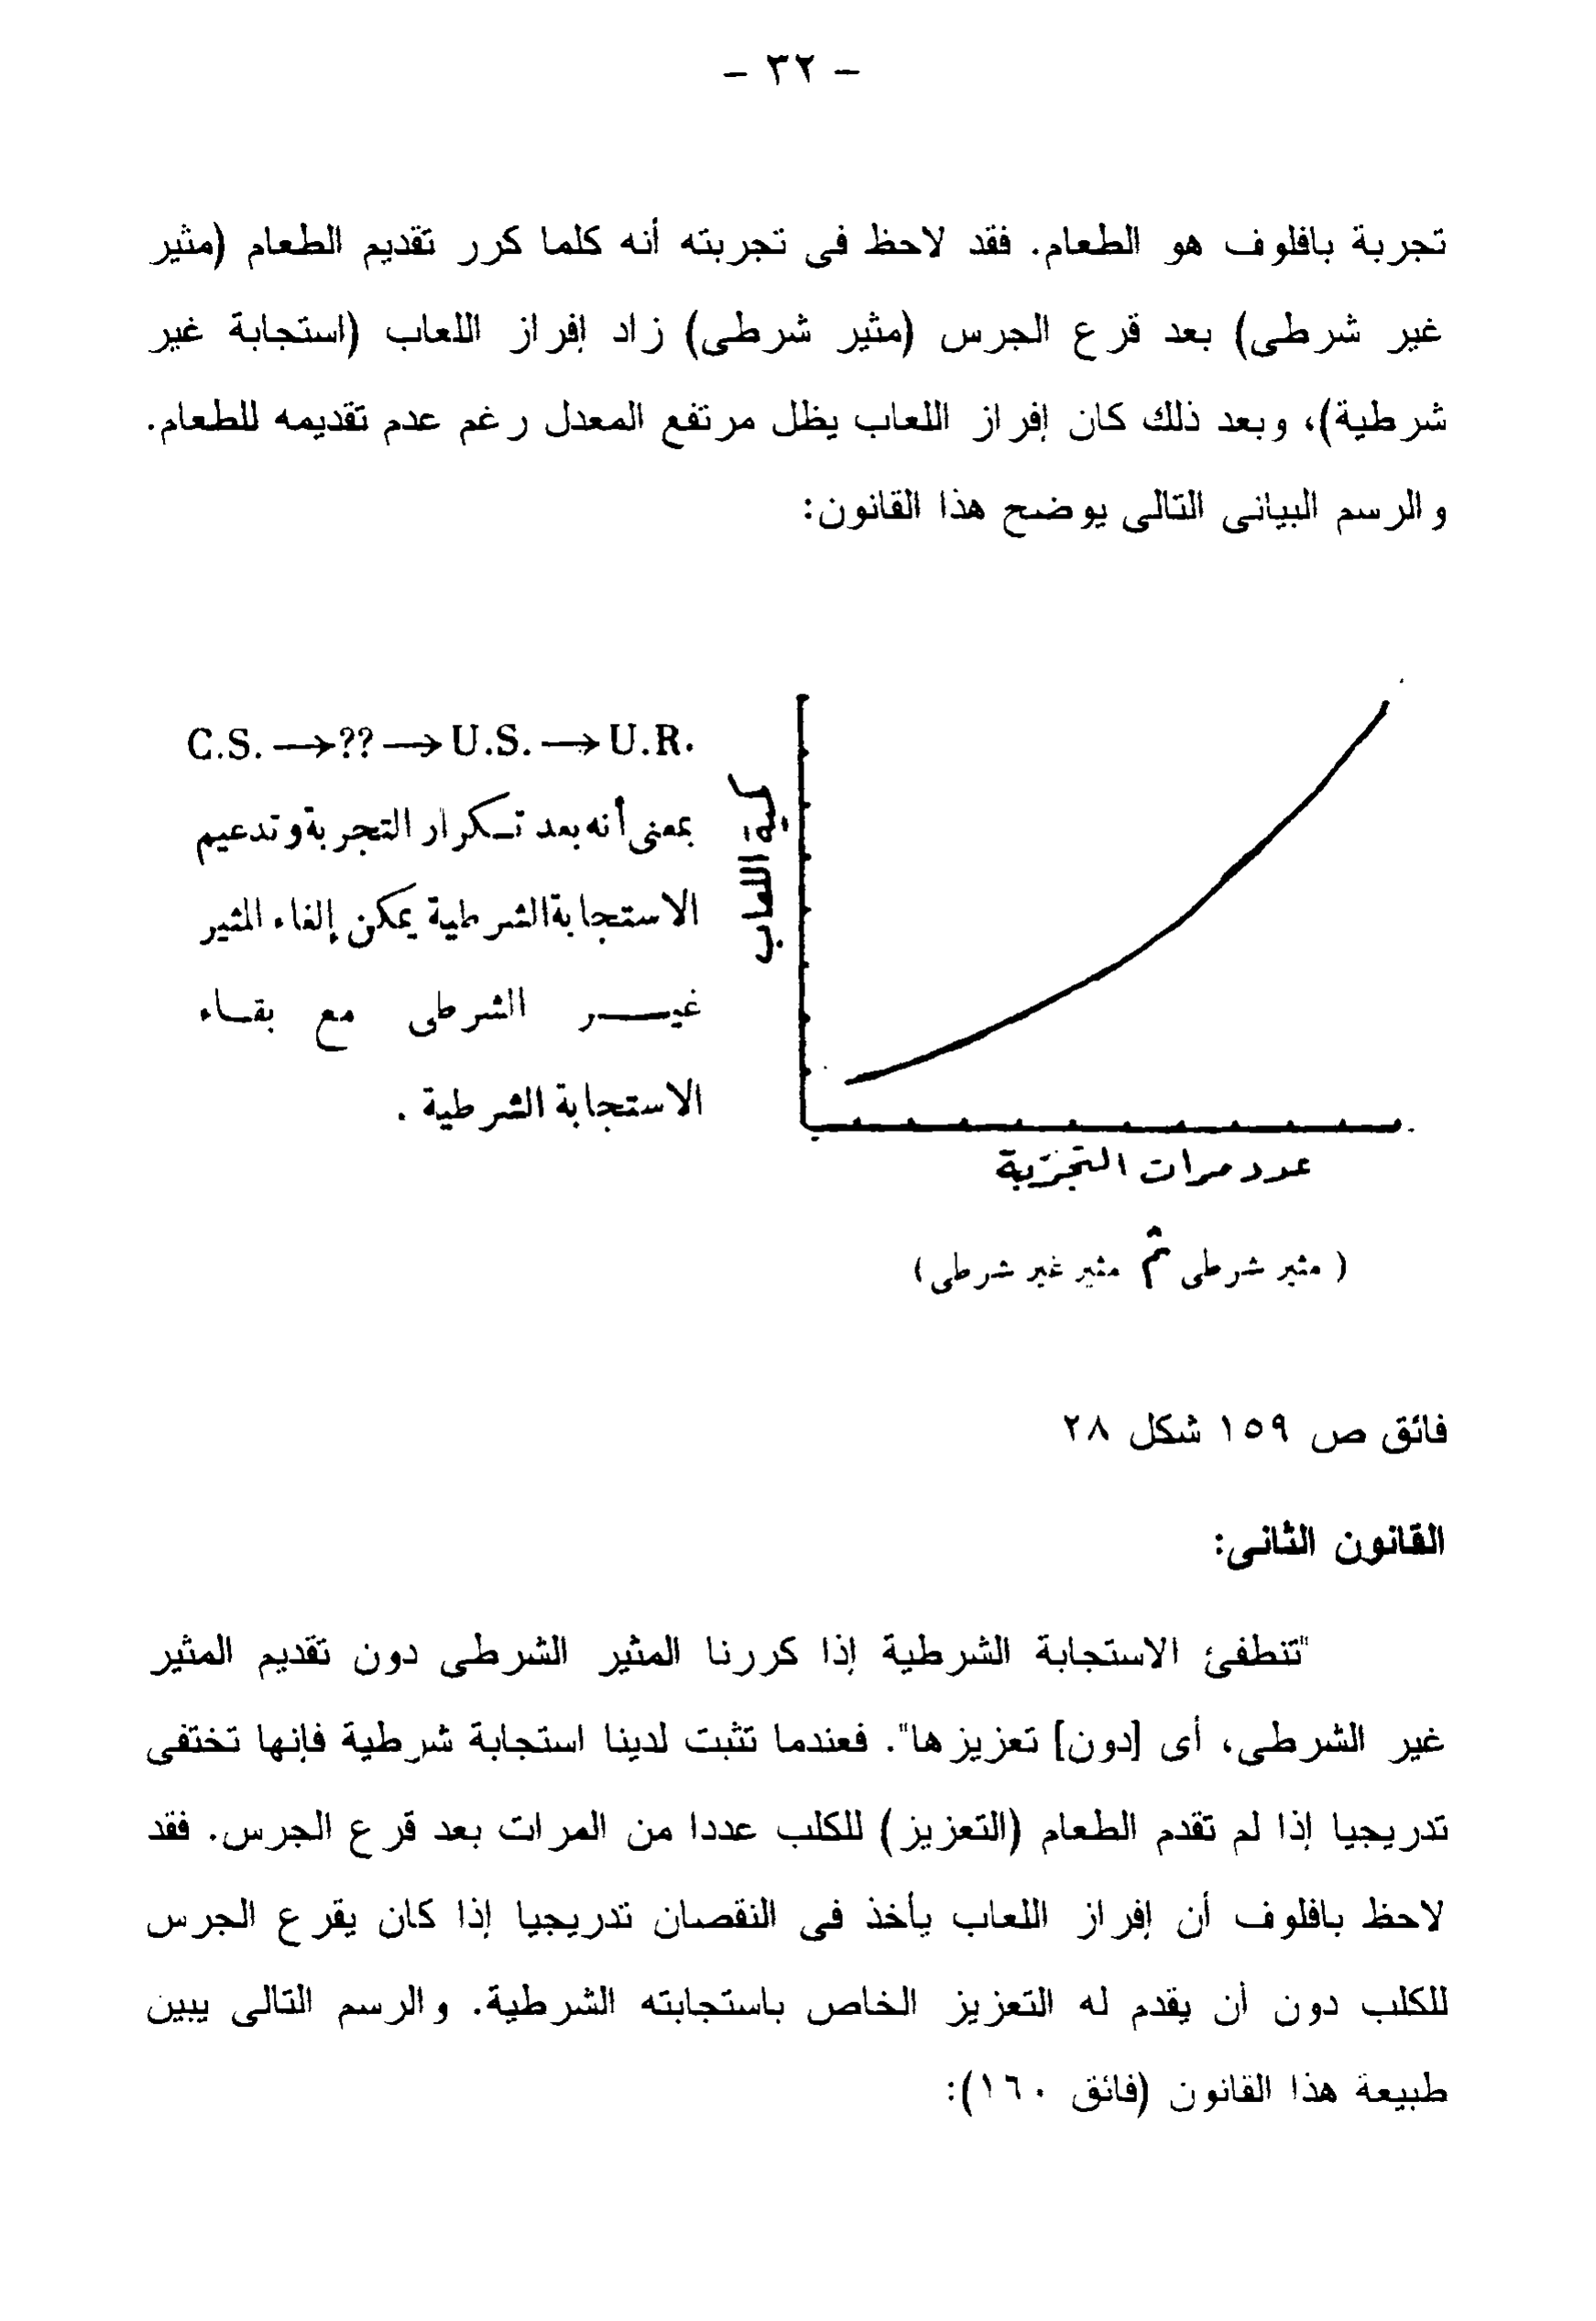 - ٣٢ -
تجربة بافلوف هو الطعام. فقد لاحظ فى تجربته أنه كلما كرر تقديم الطعام (مثير
غير شرطى) بعد قرع الجرس (مثير شرطى) زاد إفراز اللعاب (استجابة غير
شرطية)، وبعد ذلك كان إفراز اللعاب يظل مرتفع المعدل رغم عدم تقديمه للطعام.
والرسم البيانى التالى يوضح هذا القانون:
كمية اللعاب
عدد مرات التجربة
(مثير شرطى ثم مثير غير شرطى)
C.S. → ?? → U.S. → U.R.
بمعنى أنه بعد تكرار التجربة وتدعيم
الاستجابة الشرطية يمكن إلغاء المثير
غيـــر الشرطى مع بقـاء
الاستجابة الشرطية .
فائق ص ١٥٩ شكل ٢٨
القانون الثانى:
"تنطفئ الاستجابة الشرطية إذا كررنا المثير الشرطى دون تقديم المثير
غير الشرطى، أى [دون] تعزيزها". فعندما تثبت لدينا استجابة شرطية فإنها تختفى
تدريجيا إذا لم تقدم الطعام (التعزيز) للكلب عددا من المرات بعد قرع الجرس. فقد
لاحظ بافلوف أن إفراز اللعاب يأخذ فى النقصان تدريجيا إذا كان يقرع الجرس
للكلب دون أن يقدم له التعزيز الخاص باستجابته الشرطية. والرسم التالى يبين
طبيعة هذا القانون (فائق ١٦٠):